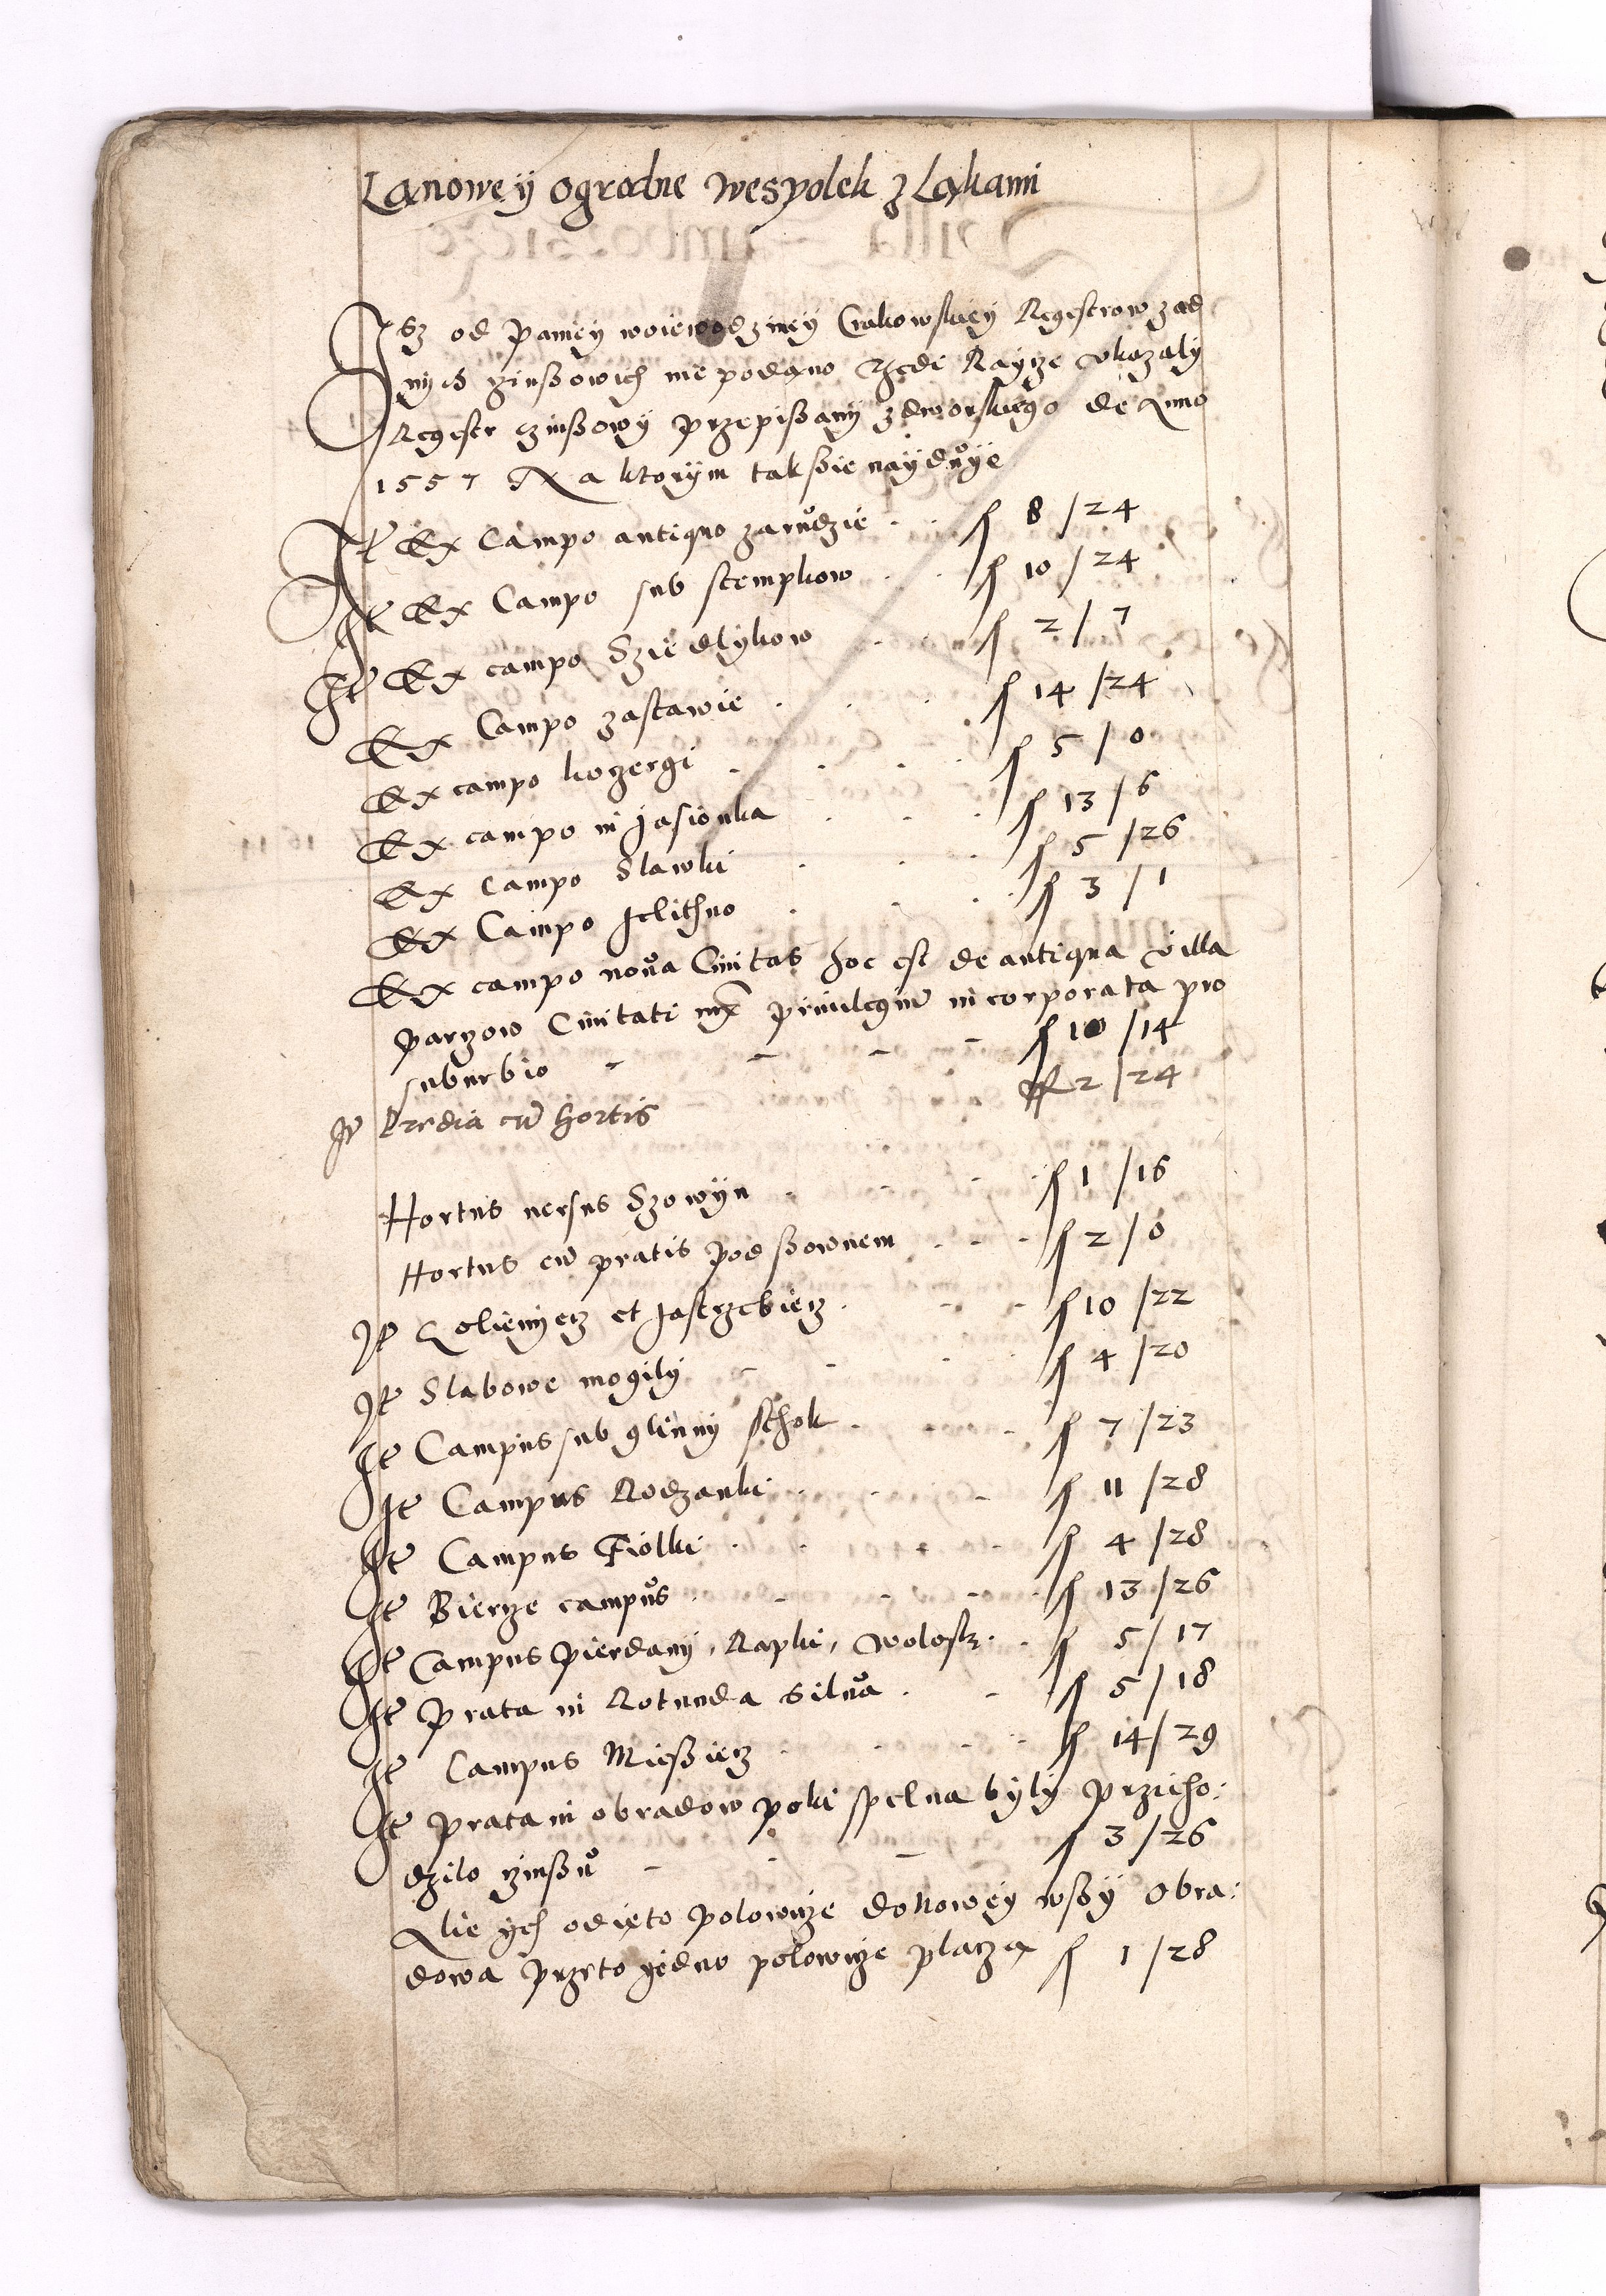 Lanowey ogrodne wespolek z Ląkami
Isz od paniey woiewodziney Crakowskiey Regestrow zad
nÿch czinßowich nie podano Thedi Rayze Ukazalÿ
Regestr czinßowÿ przepißanÿ zdworskiego de Anno
1557 Na ktorÿm tak ßie nayduÿe
It Ex Campo antiquo zarudzie f 8 / 24
It Ex Campo sub stempkow f 10 / 24
It Ex campo Sziedlÿkow f 2 / 7
Ex Campo zastawie f 14 / 24
Ex campo kozergi f 5 / 0
Ex campo in Jasionka f 13 / 6
Ex Campo Slawki f 5 / 26
Ex Campo Jelithno f 3 / 1
Ex campo nova Civitas hoc est de antiqua villa
parzow Civitati iux privilegiu incorporata pro
suburbio f 10 / 14
It Predia cu hortis f 2 / 24
Hortus versus Szowÿn f 1 / 16
Hortus cu pratis pod ßownem f 2 / 0
It Kolienÿecz et Jastrzebiecz f 10 / 22
It Slabowe mogilÿ f 4 / 20
It Campus sub glinnÿ sthok f 7 / 23
It Campus Rodzanki f 11 / 28
It Campus Fiolki f 4 / 28
It Bierze campus f 13 / 26
It Campus pierdanÿ, Rapki, Wolosk f 5 / 17
It Prata in Rotunda silva f 5 / 18
It Campus Mießiecz f 14 / 29
It prata in obradow poki spelna bÿlÿ przicho:
dzilo czinßu f 3 / 26
Alie ÿch odięto polowicze do Nowey wßÿ Obra:
dowa przeto ÿedno polowicze placzą f 1 / 28